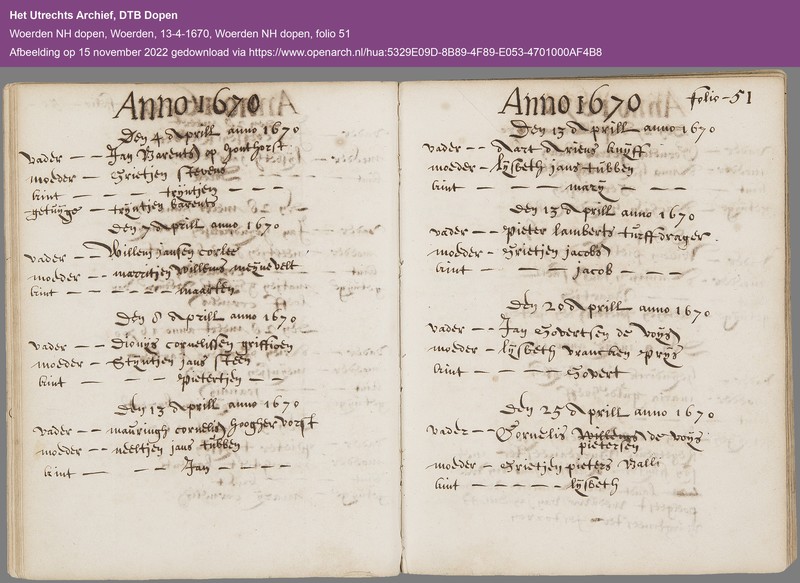 Het Utrechts Archief, DTB Dopen
Woerden NH dopen, Woerden, 13-4-1670, Woerden NH dopen, folio 51
Afbeelding op 15 november 2022 gedownload via https://www.openarch.nl/hua:5329E09D-8B89-4F89-E053-4701000AF4B8
Anno 1670
Den 4 Aprill anno 1670
vader - - Jan Barents op honthorst
moeder - - Grietjen stevens
kint - - trÿntjen - - -
getuÿge - trÿntjen barents
Den 7 Aprill anno 1670
vader - - Willem jansen corlee
moeder - marritjen Willems meÿnevelt
kint - - - - - maarten
Den 8 Aprill anno 1670
vader - - Dionÿs cornelissen griffioen
moeder - Stÿntjen jans steen
kint - - - pietertjen - -
Den 13 Aprill anno 1670
vader - - mauringh cornelis hoogher vorst
moeder - - neeltjen jans tübben
kint - - - Jan - - - - -
Anno 1670 folio - 51
Den 13 Aprill anno 1670
vader - - Aart Ariens knÿff
moeder - lÿsbeth jans tübben
kint - - - - marÿ - - - -
Den 13 Aprill anno 1670
vader - - pieter lamberts turffdrager .
moeder - Grietjen jacobs
kint - - - - jacob - - -
Den 20 Aprill anno 1670
vader - - Jan Govertsen de voÿs
moeder - lÿsbeth vrancken prÿs
kint - - - - - Govert
Den 25 Aprill anno 1670
vader - - Cornelis Willems de voÿs
pietersen
moeder - Grietjen pieters Balli
kint - - - - - - lÿsbeth